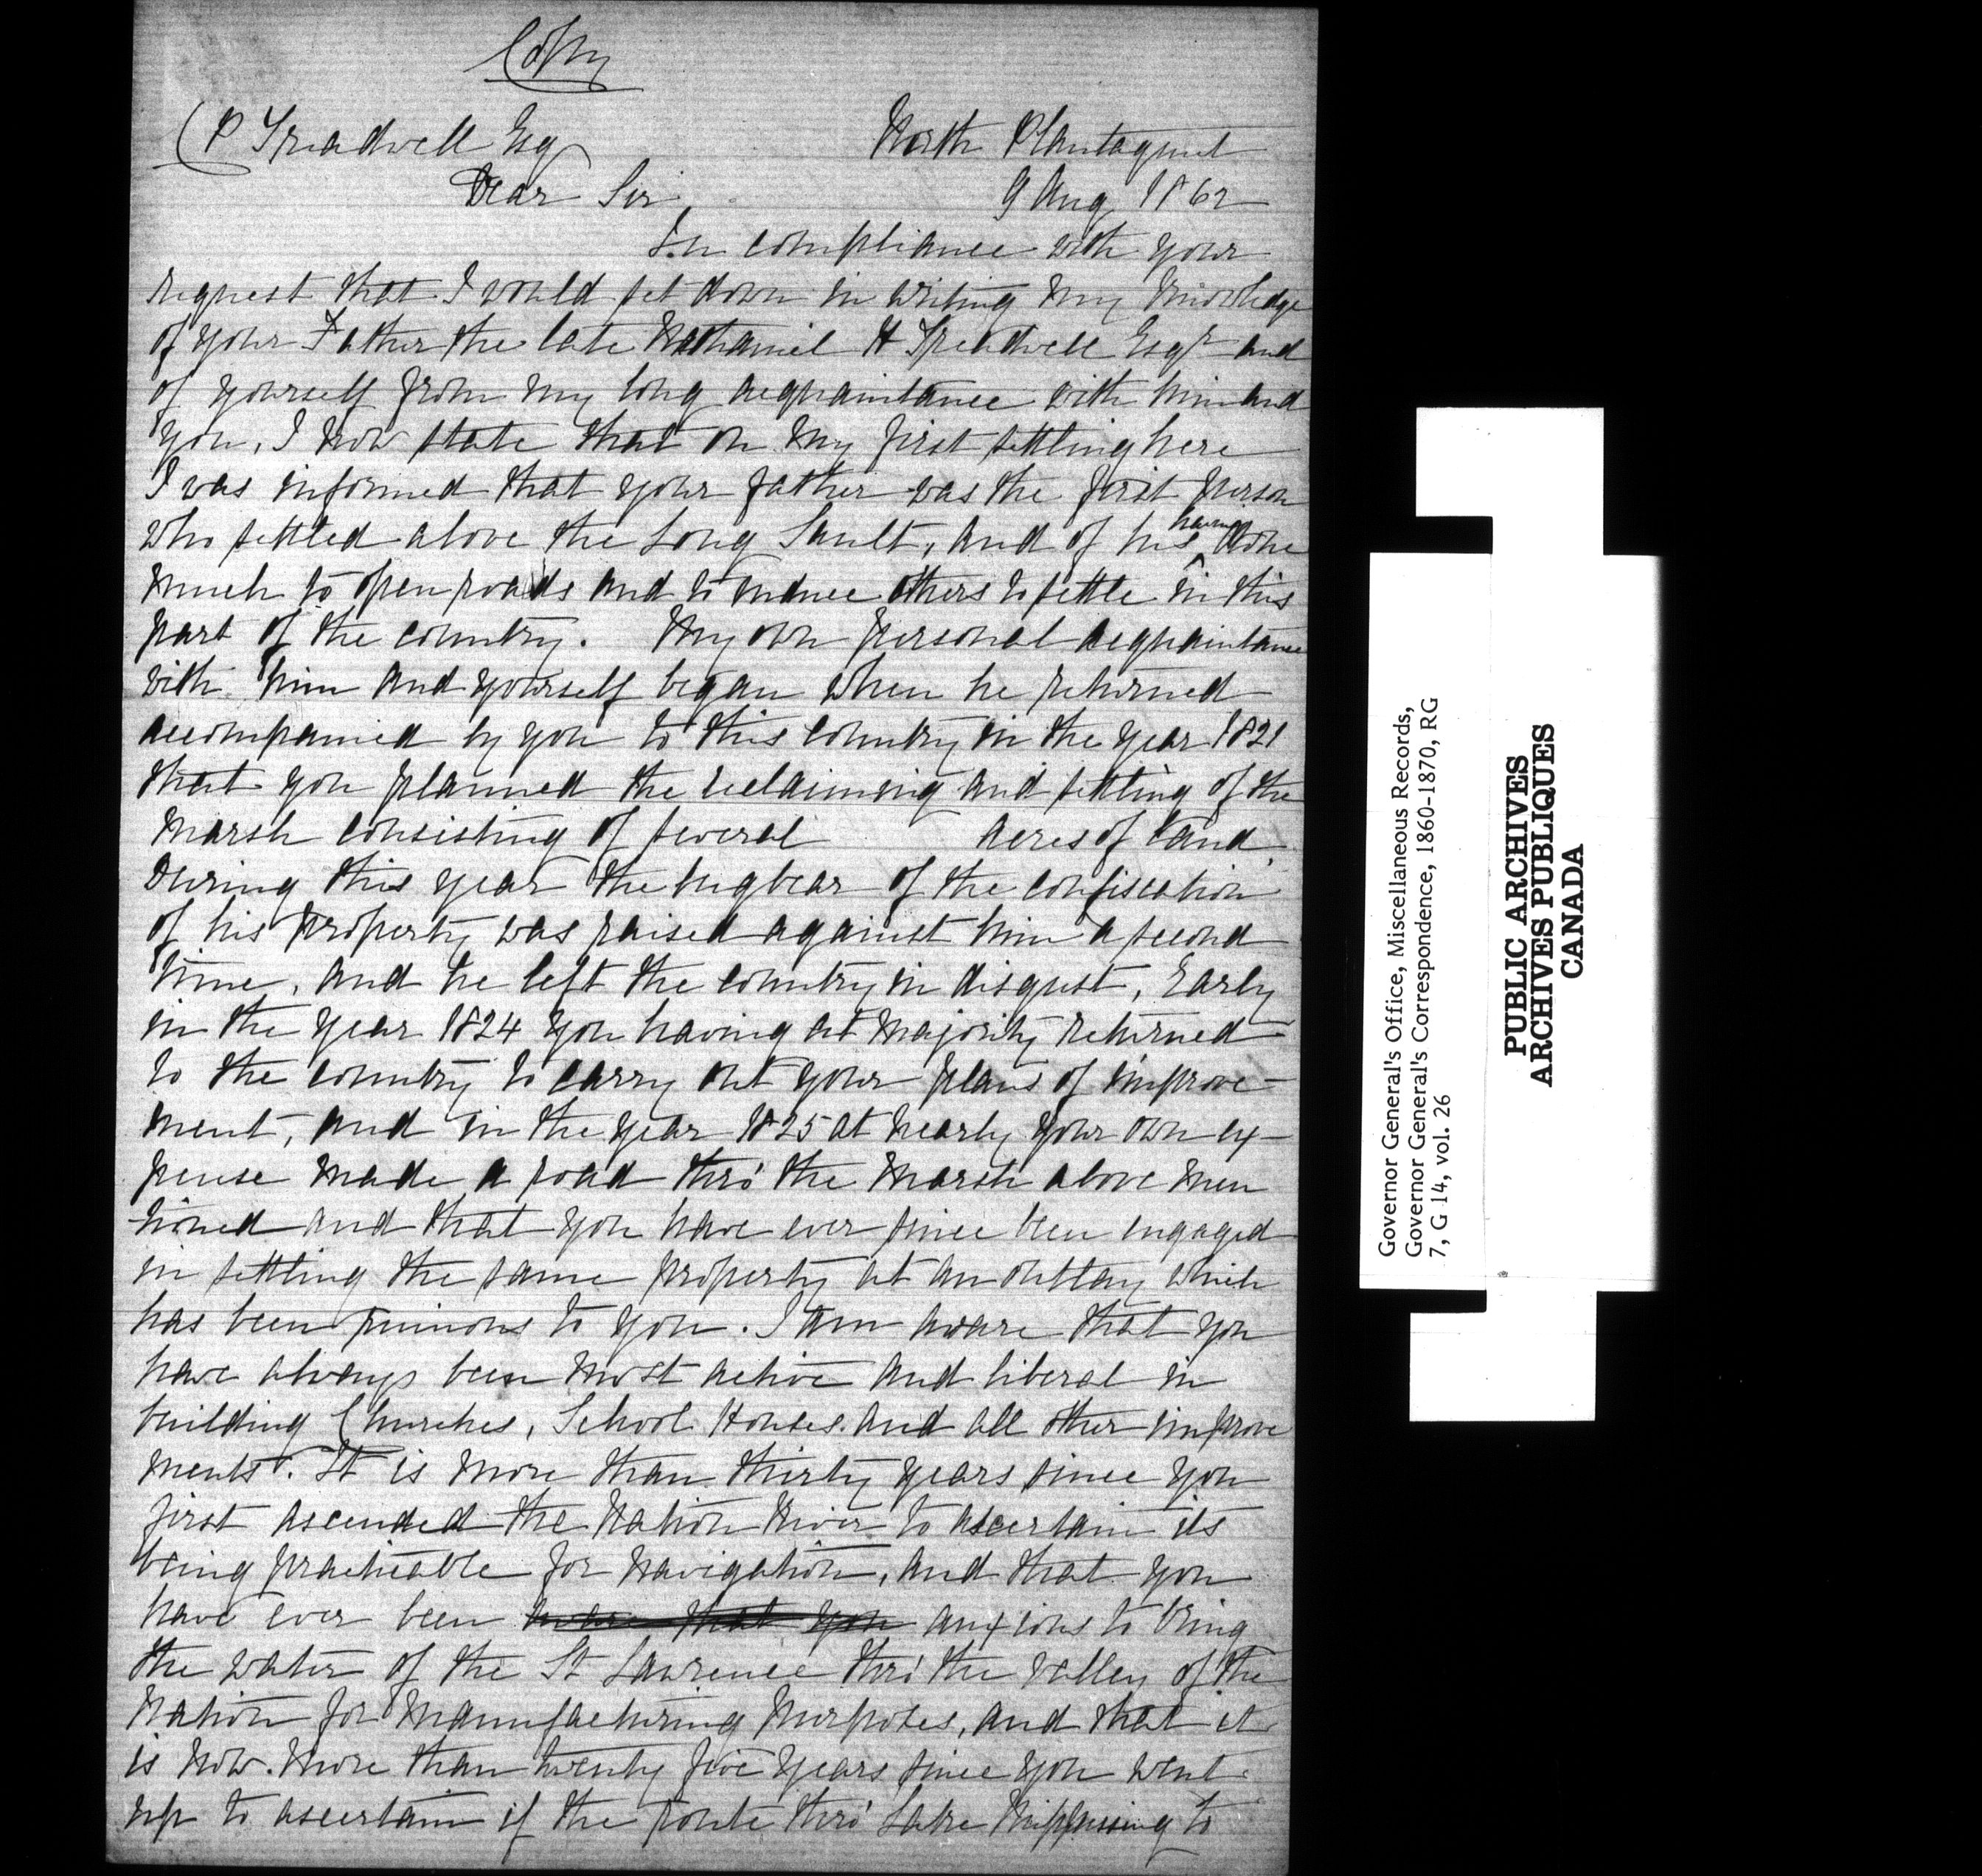 Copy
C P Treadwell Esq
North Plantagenet
Dear Sir
9 Aug 1862
In compliance with your
request that I would set down in writing my knowledge
of your Father the late Nathaniel H Treadwell Esqr and
of yourself from my long acquaintance with him and
you, I now state that on my first settling here
I was informed that your father was the first person
who settled above the Long Sault, and of his having done
much to open roads and to induce others to settle in this
part of the country. My own personal acquaintance
with him and yourself began when he returned
accompanied by you to this country in the year 1821
that you planned the reclaiming and settling of the
Marsh consisting of several acres of land.
During this year the bugbear of the confiscation
of his property was raised against him a second
time, and he left the country in disgust, Early
in the year 1824 you having at majority returned
to the country to carry out your plans of improve-
ment, and in the year 1825 at nearly your own ex-
pense made a road thro' the Marsh above men
tioned and that you have ever since been engaged
in settling the same property at an outlay which
has been ruinous to you. I am aware that you
have always been most active and liberal in
building Churches, School Houses and all other improve
ments. It is more than thirty years since you
first ascended the Nation River to ascertain its
being practicable for navigation, and that you
have ever been aware that you anxious to bring
the water of the St Lawrence thro' the valley of the
Nation for Manufacturing purposes, and that it
is now more than twenty five years since you went
up to ascertain if the route thro' Lake Nippissing to
Governor General's Office, Miscellaneous Records,
Governor General's Correspondence, 1860-1870, RG
7, G 14, vol. 26
PUBLIC ARCHIVES
ARCHIVES PUBLIQUES
CANADA